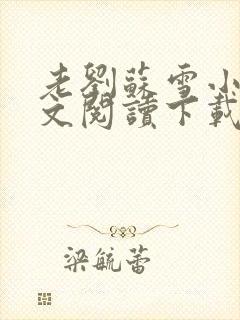 老劉蘇雪小
文閱讀下載
梁毓蕾